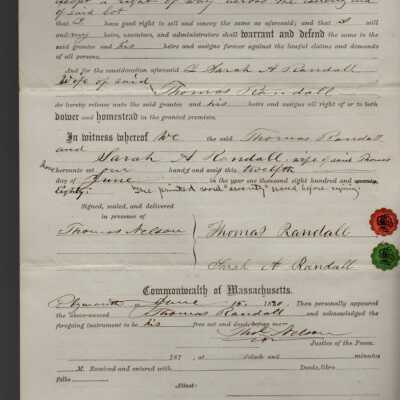 except a right of way across the
of said lot
that I have good right to sell and convey the same as aforesaid; and that I will
and my heirs, executors, and administrators shall warrant and defend the same to the
said grantee and his heirs and assigns forever against the lawful claims and demands
of all persons.
And for the consideration aforesaid I Sarah A Randall
Wife of said Thomas Randall
do hereby release unto the said grantee and his heirs and assigns all right of or to both
dower and homestead in the granted premises.
In witness whereof We the said Thomas Randall
and
Sarah A Randall, wife of said Thomas
have hereunto set our hands and seals this twelfth
day of June in the year one thousand eight hundred and seventy
Eighty: The printed word "seventy" erased before signing
Signed, sealed, and delivered
in presence of
Thomas Nelson
Thomas Randall
Sarah A Randall
Commonwealth of Massachusetts.
Plymouth June 15, 1880. Then personally appeared
the above-named Thomas Randall and acknowledged the
foregoing instrument to be his free act and deed; before me,
Thos Nelson
Justice of the Peace.
187 , at o'clock and minutes
M. Received and entered with Deeds, libro
folio
Attest: